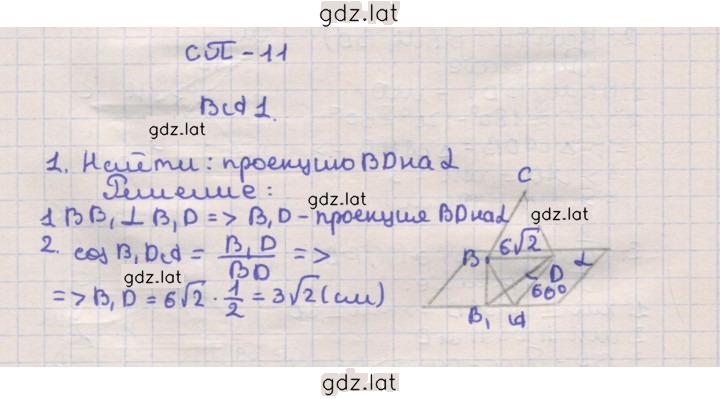 gdz.lat
СП-11
В⊂А 1.
gdz.lat
1. Найти: проекцию BD на α
Решение:
gdz.lat
1 BB₁ ⊥ B₁D => B₁D - проекция BD на α
2. cos B₁DA = B₁D / BD =>
gdz.lat
=> B₁D = 6√2 · 1/2 = 3√2 (см)
C
gdz.lat
6√2
B
α
D
60°
B₁ A
gdz.lat